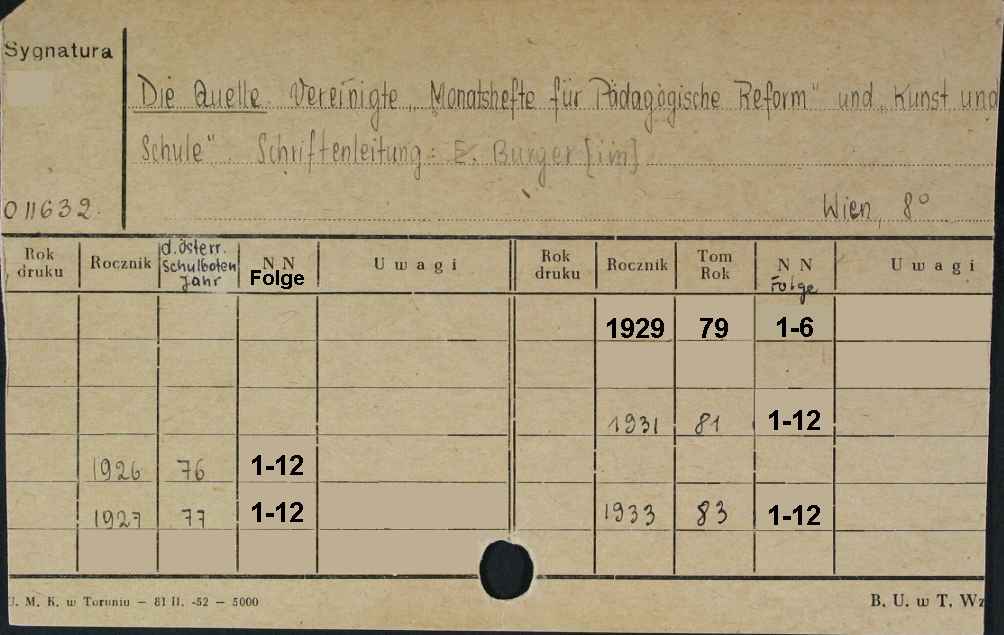 Sygnatura
Die Quelle. Vereinigte „Monatshefte für Pädagogische Reform" und „Kunst und
Schule". Schriftenleitung: E. Burger [i in]
011632. Wien, 8°
Rok druku Rocznik d. österr. Schulboten Jahr N N Folge Uwagi Rok druku Rocznik Tom Rok N N Folge Uwagi
1929 79 1-6
1931 81 1-12
1926 76 1-12
1927 77 1-12 1933 83 1-12
U. M. K. w Toruniu — 81 II. -52 — 5000 B. U. w T. Wz